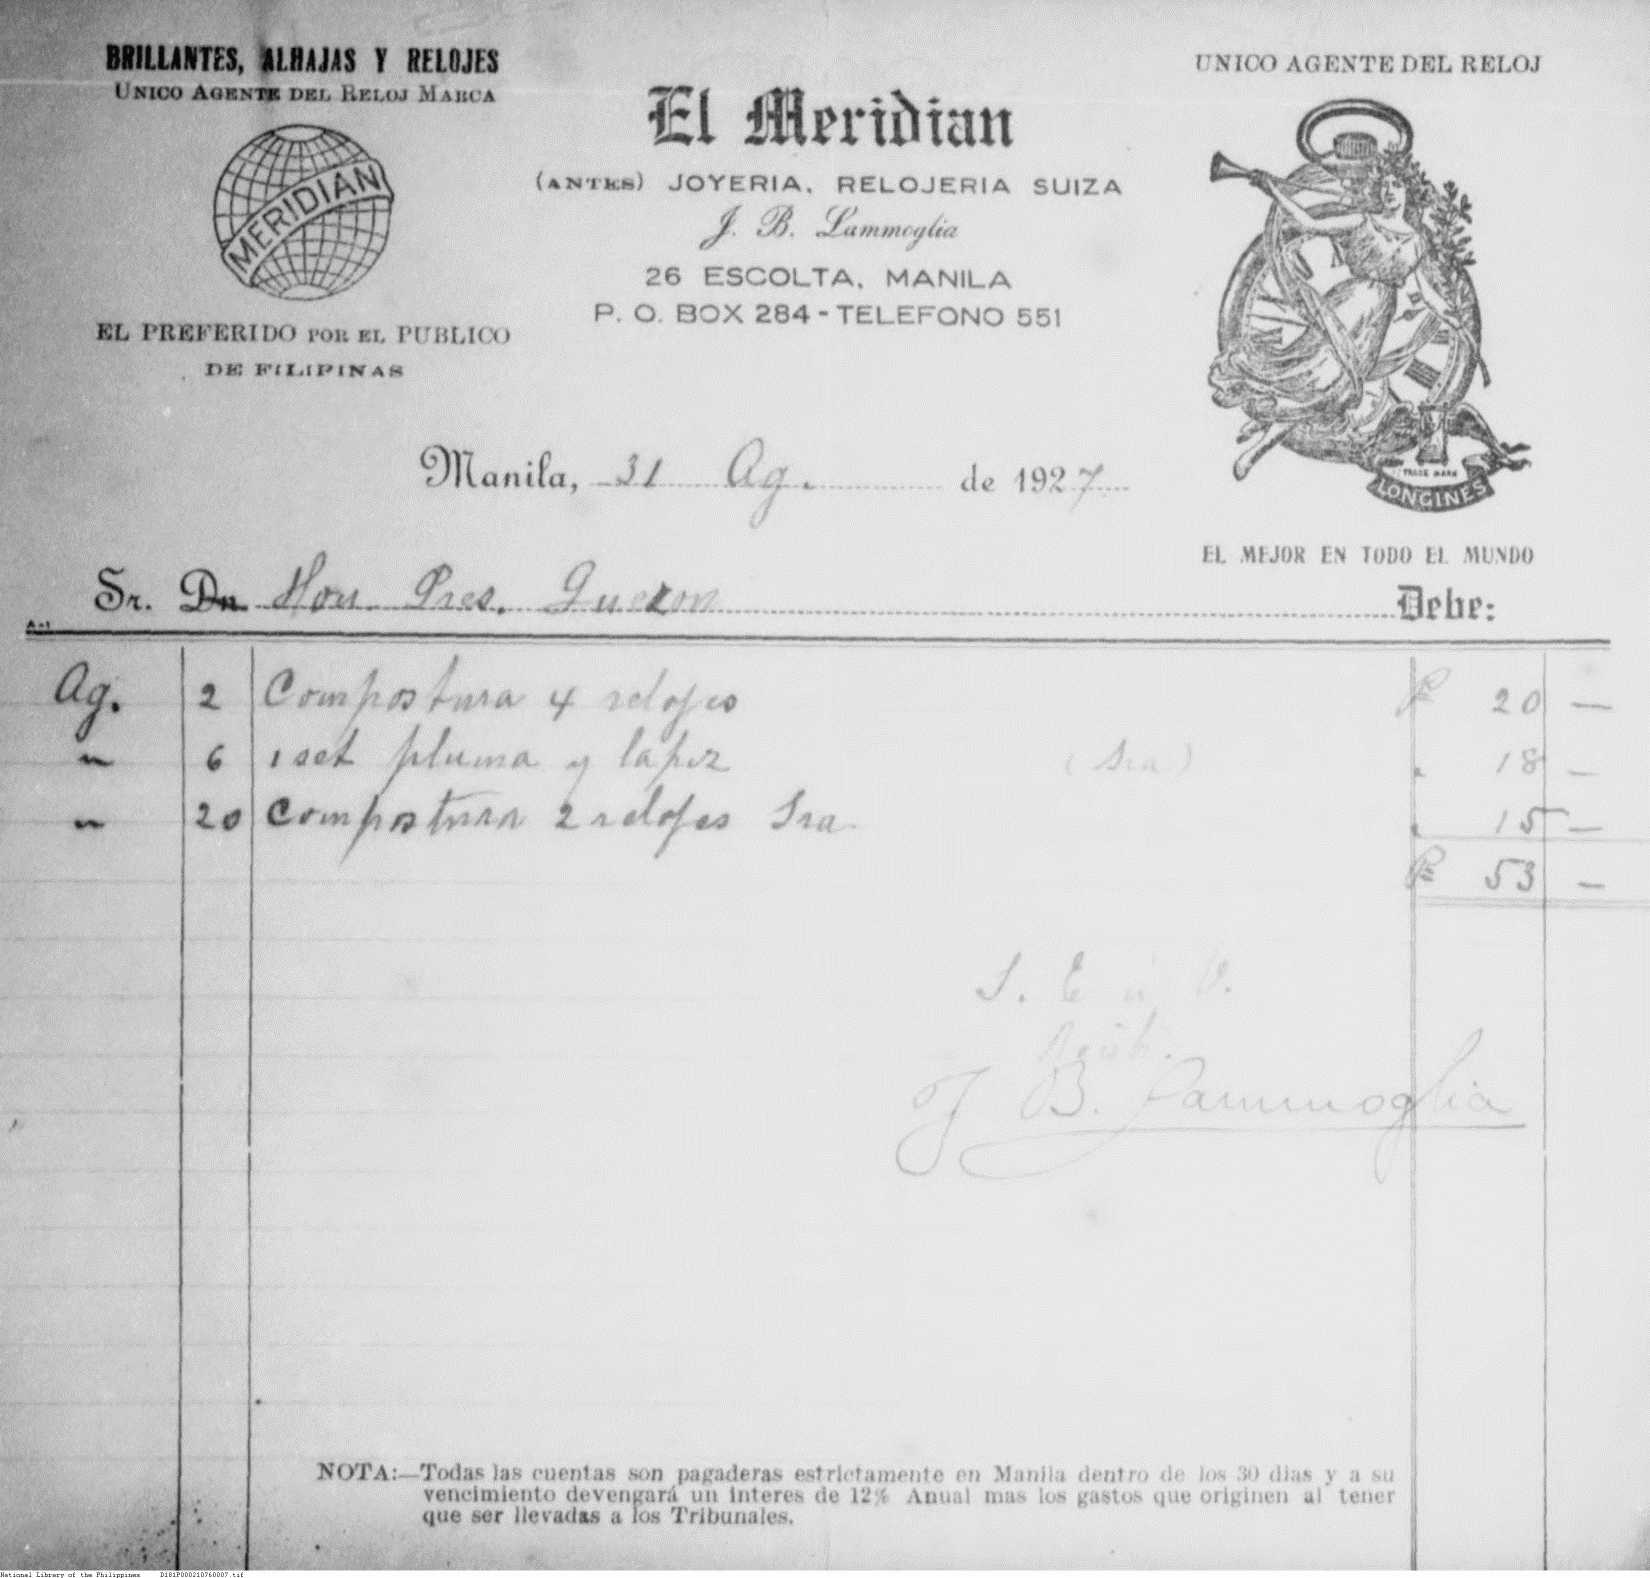 BRILLANTES, ALHAJAS Y RELOJES
UNICO AGENTE DEL RELOJ MARCA
MERIDIAN
EL PREFERIDO POR EL PUBLICO
DE FILIPINAS
El Meridian
(ANTES) JOYERIA, RELOJERIA SUIZA
J. B. Lammoglia
26 ESCOLTA, MANILA
P. O. BOX 284 - TELEFONO 551
UNICO AGENTE DEL RELOJ
TRADE MARK
LONGINES
EL MEJOR EN TODO EL MUNDO
Manila, 31 Ag. de 1927
Sr. Dn Hon. Pres. Quezon Debe:
A-1
Ag. 2 Compostura 4 relojes ₱ 20 —
" 6 1 set pluma y lapiz (Sra) " 18 —
" 20 Compostura 2 relojes Sra. " 15 —
₱ 53 —
S. E. u O.
J B. Lammoglia
NOTA:—Todas las cuentas son pagaderas estrictamente en Manila dentro de los 30 dias y a su
vencimiento devengará un interes de 12% Anual mas los gastos que originen al tener
que ser llevadas a los Tribunales.
National Library of the Philippines D181P000210760007.tif